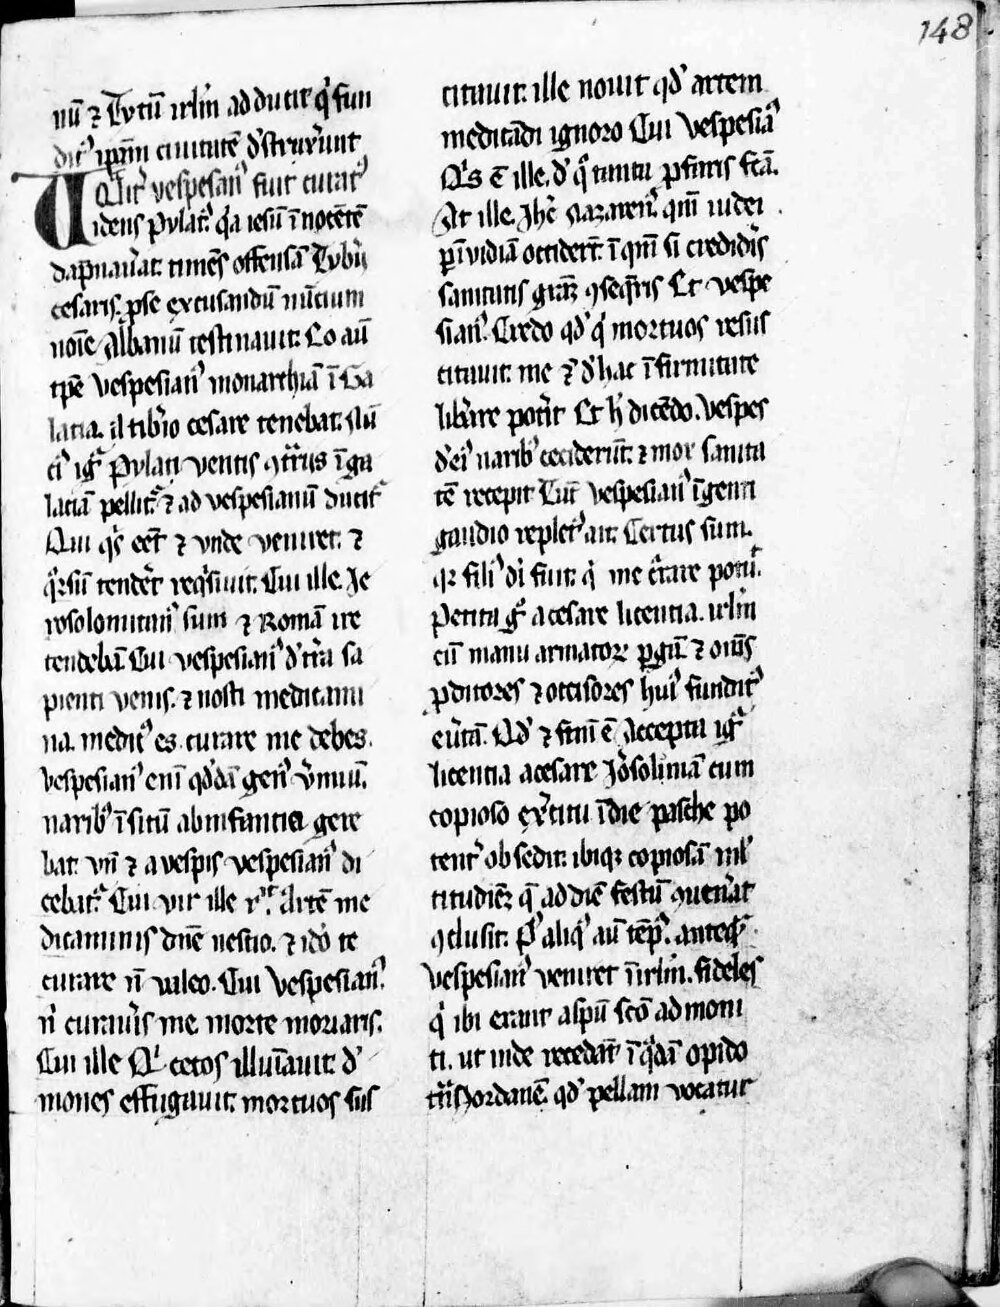 148
nū ⁊ Tytū irl̄m adducit q̇ fun
dit᷒ ip̄am ciuitatē dꝰstruxerunt
Qͣlit᷒ vespesian᷒ fuit curat᷒
Videns pylat᷒ q̇a iesū īnocētē
dapnau̇at. timēs offensā Tyb'ii
cesaris. ꝓse excusandū nūcium
noīe Albanū destinauit. Eo aū
tꝑe vespesian᷒ monarchiā ī Ga
latia. a tib'io cesare tenebat. Nū
ci᷒ igͥ Pylati ventis ꝯtͣriis ī ga
latiā pellit᷒ ⁊ ad vespesianū ducit᷒
Qui q̇s eēt ⁊ vnde veniret. ⁊
q̊rsū tendēt req̇siuit. Cui ille. Je
rosolomitan᷒ sum ⁊ Romā ire
tendebā. Cui vespesian᷒ d' t'ra sa
pienti venis. ⁊ nosti medicami
na. medic᷒ es. curare me debes.
vespesian᷒ eni᷒ q̊dā gen᷒ v'miū.
narib᷒ īsitū abinfantia gere
bat. vn̄ ⁊ a vespis vespesian᷒ di
cebat᷒. Cui vir ille r̄. Artē me
dicaminis dn̄e nescio. ⁊ iō te
curare n̄ valeo. Cui Vespesian᷒.
n̄ curau'is me morte moriaris.
Cui ille Qͥ cecos illuīauit d'
mones effugauit. mortuos sus
citauit. ille nouit qd' artem
medicādi ignoro Cui Vespesia᷒
Q̇s ē ille. d' q̊ tanta ꝓfitis fc̄a.
At ille. Jhc̄ Nazaren᷒ qm̄ iudei
ꝑ īvidiā occiderūt. ī qm̄ si credid'is
sanitatis grām ꝯseq̄ris Et vespe
sian᷒. Credo qd' q̇ mortuos resus
citauit. me ⁊ d' hac īfirmitate
lib'are pot'it Et h̄ dicēdo. Vespes
d' ei᷒ narib᷒ ceciderūt. ⁊ mox sanita
tē recepit Tūc vespesian᷒ īgenti
gaudio replet᷒ ait. Certus sum.
qꝛ fili᷒ di fuit. q̇ me c'rare potuit.
Petita gͥ acesare licentia. irl̄m
cū manu armatoꝝ ꝑgā ⁊ om̄s
ꝓditores ⁊ occisores hui᷒ fundit᷒
eu'tā. Qd' ⁊ fcm̄ ē Accepta igͥ
licentia acesare Jerosolimā cum
copioso ex'citu īdie pasche po
tent' obsedit. ibiqꝫ copiosā ml'
titudinē. q̄ ad diē festū ꝯuen'at
ꝯclusit. Pͥ aliq᷒ aū tēp᷒. anteqͣ
vespesian᷒ veniret ī irl̄m. fideles
q̇ ibi erant aspū sc̄o admoni
ti. ut inde recedāt ī q̊dā opido
tn̄s Jordanē. qd' pellam vocatur